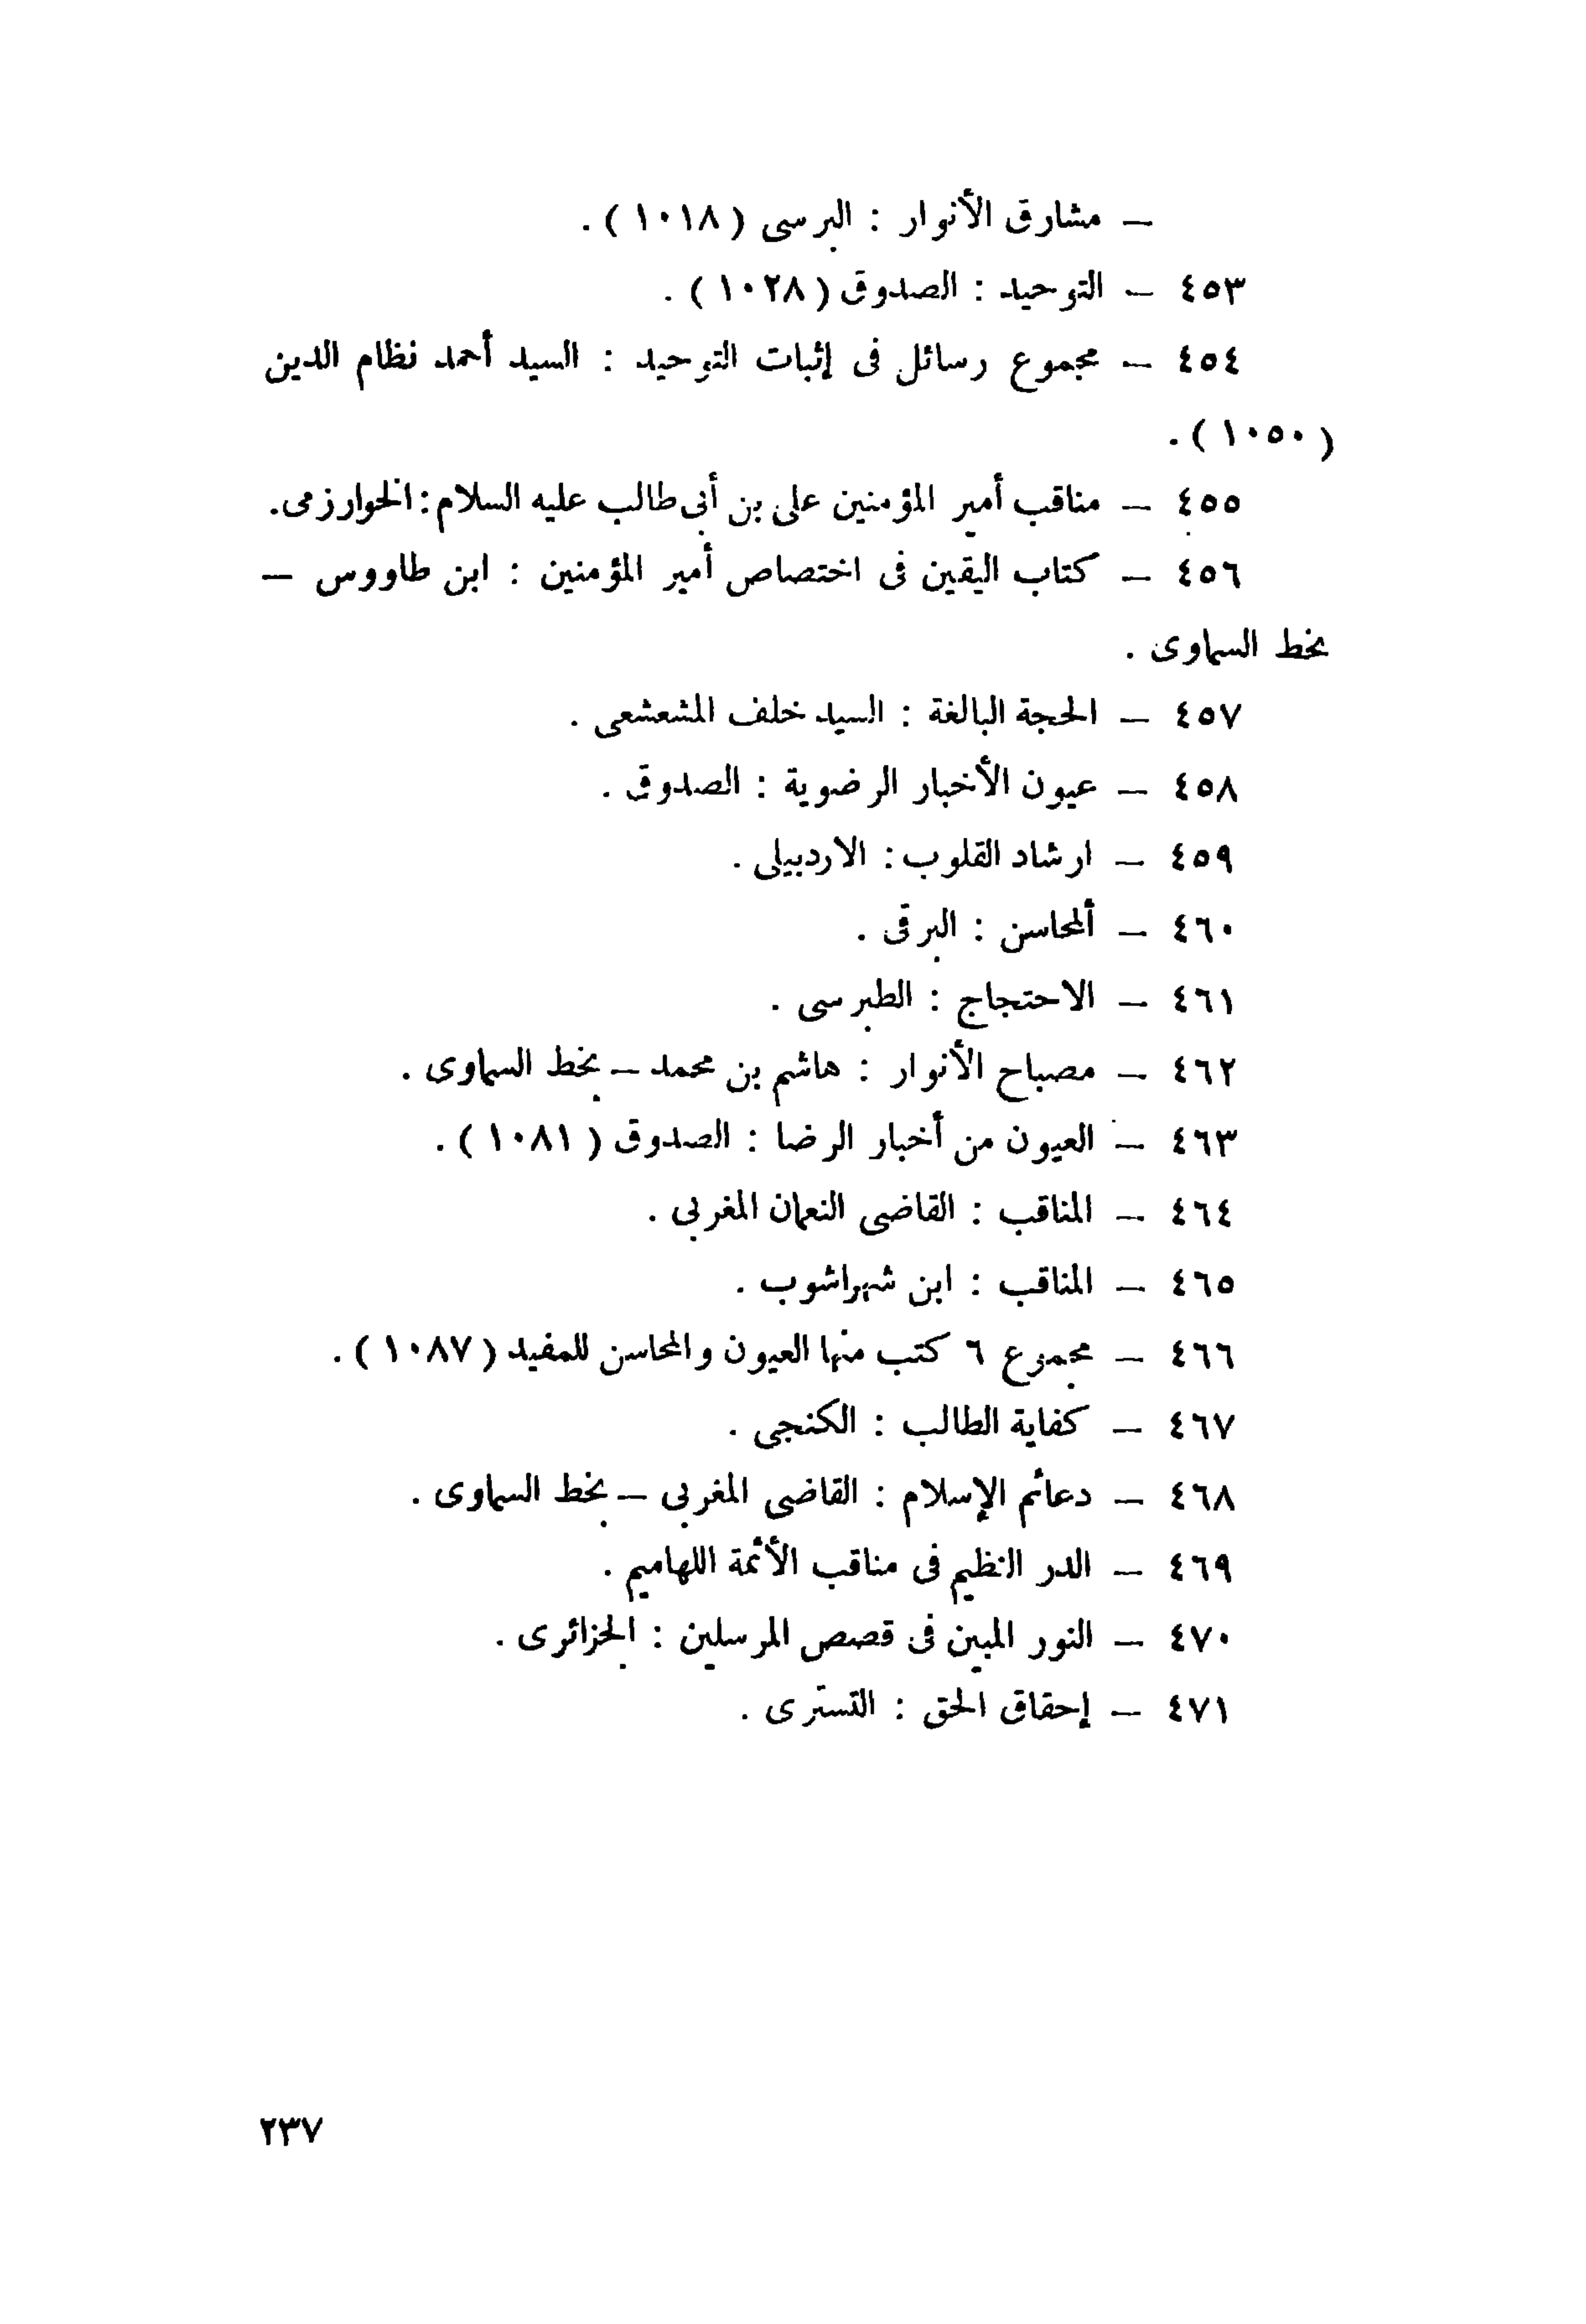 — مشارق الأنوار : البرسى ( ١٠١٨ ) .
٤٥٣ — التوحيد : الصدوق ( ١٠٢٨ ) .
٤٥٤ — مجموع رسائل فى إثبات التوحيد : السيد أحمد نظام الدين
( ١٠٥٠ ) .
٤٥٥ — مناقب أمير المؤمنين على بن أبى طالب عليه السلام : الخوارزمى .
٤٥٦ — كتاب اليقين فى اختصاص أمير المؤمنين : ابن طاووس —
بخط السماوى .
٤٥٧ — الحجة البالغة : السيد خلف المشعشعى .
٤٥٨ — عيون الأخبار الرضوية : الصدوق .
٤٥٩ — ارشاد القلوب : الاردبيلى .
٤٦٠ — ألمحاسن : البرقى .
٤٦١ — الاحتجاج : الطبرسى .
٤٦٢ — مصباح الأنوار : هاشم بن محمد — بخط السماوى .
٤٦٣ — العيون من أخبار الرضا : الصدوق ( ١٠٨١ ) .
٤٦٤ — المناقب : القاضى النعمان المغربى .
٤٦٥ — المناقب : ابن شهراشوب .
٤٦٦ — مجموع ٦ كتب منها العيون والمحاسن للمفيد ( ١٠٨٧ ) .
٤٦٧ — كفاية الطالب : الكنجى .
٤٦٨ — دعائم الإسلام : القاضى المغربى — بخط السماوى .
٤٦٩ — الدر النظيم فى مناقب الأئمة اللهاميم .
٤٧٠ — النور المبين فى قصص المرسلين : الجزائرى .
٤٧١ — إحقاق الحق : التسترى .
٢٣٧